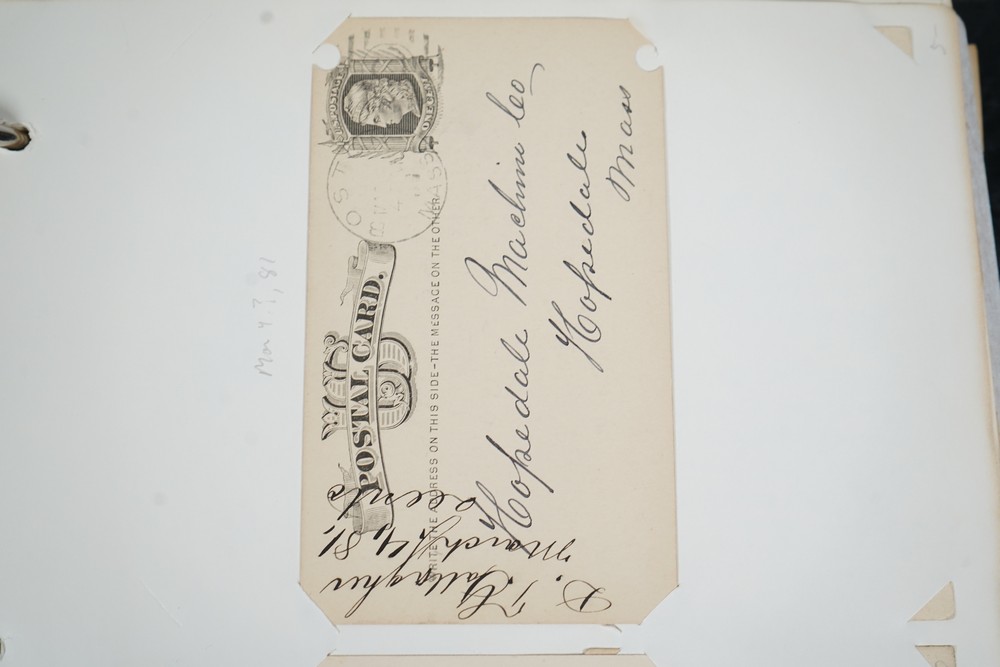 U.S. POSTAGE
ONE CENT
OST
MASS
POSTAL CARD.
WRITE THE ADDRESS ON THIS SIDE-THE MESSAGE ON THE OTHER
Hopedale Machine Co
Hopedale
Mass
D. F. Gallagher
March 14, 81,
5